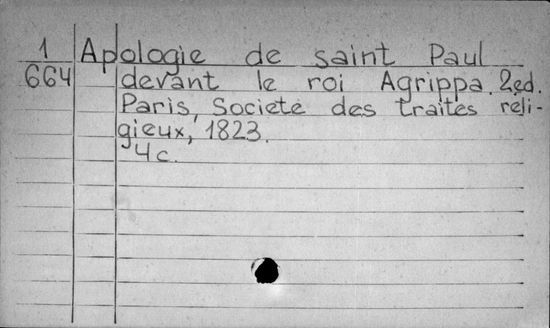 1 Apologie de saint Paul
664 devant le roi Agrippa. 2ed.
Paris, Societe des traites reli-
gieux, 1823.
4c.